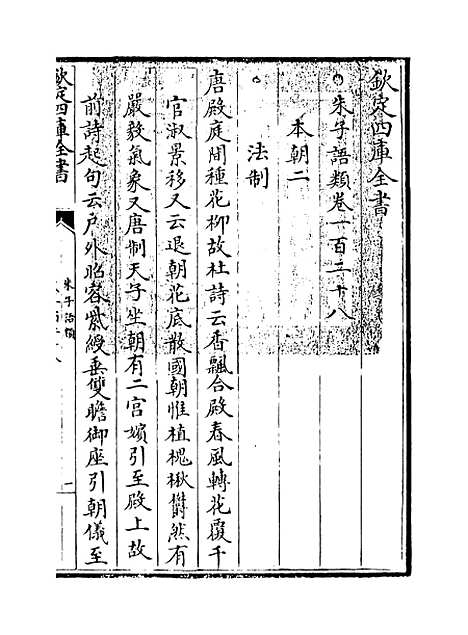 欽定四庫全書
朱子語類卷一百二十八
本朝二
法制
唐殿庭間種花柳故杜詩云香飄合殿春風轉花覆千
官淑景移又云退朝花底散國朝惟植槐楸欝然有
嚴毅氣象又唐制天子坐朝有二宮嬪引至殿上故
前詩起句云户外昭容紫綬垂雙瞻御座引朝儀至
欽定四庫全書
朱子語類
一